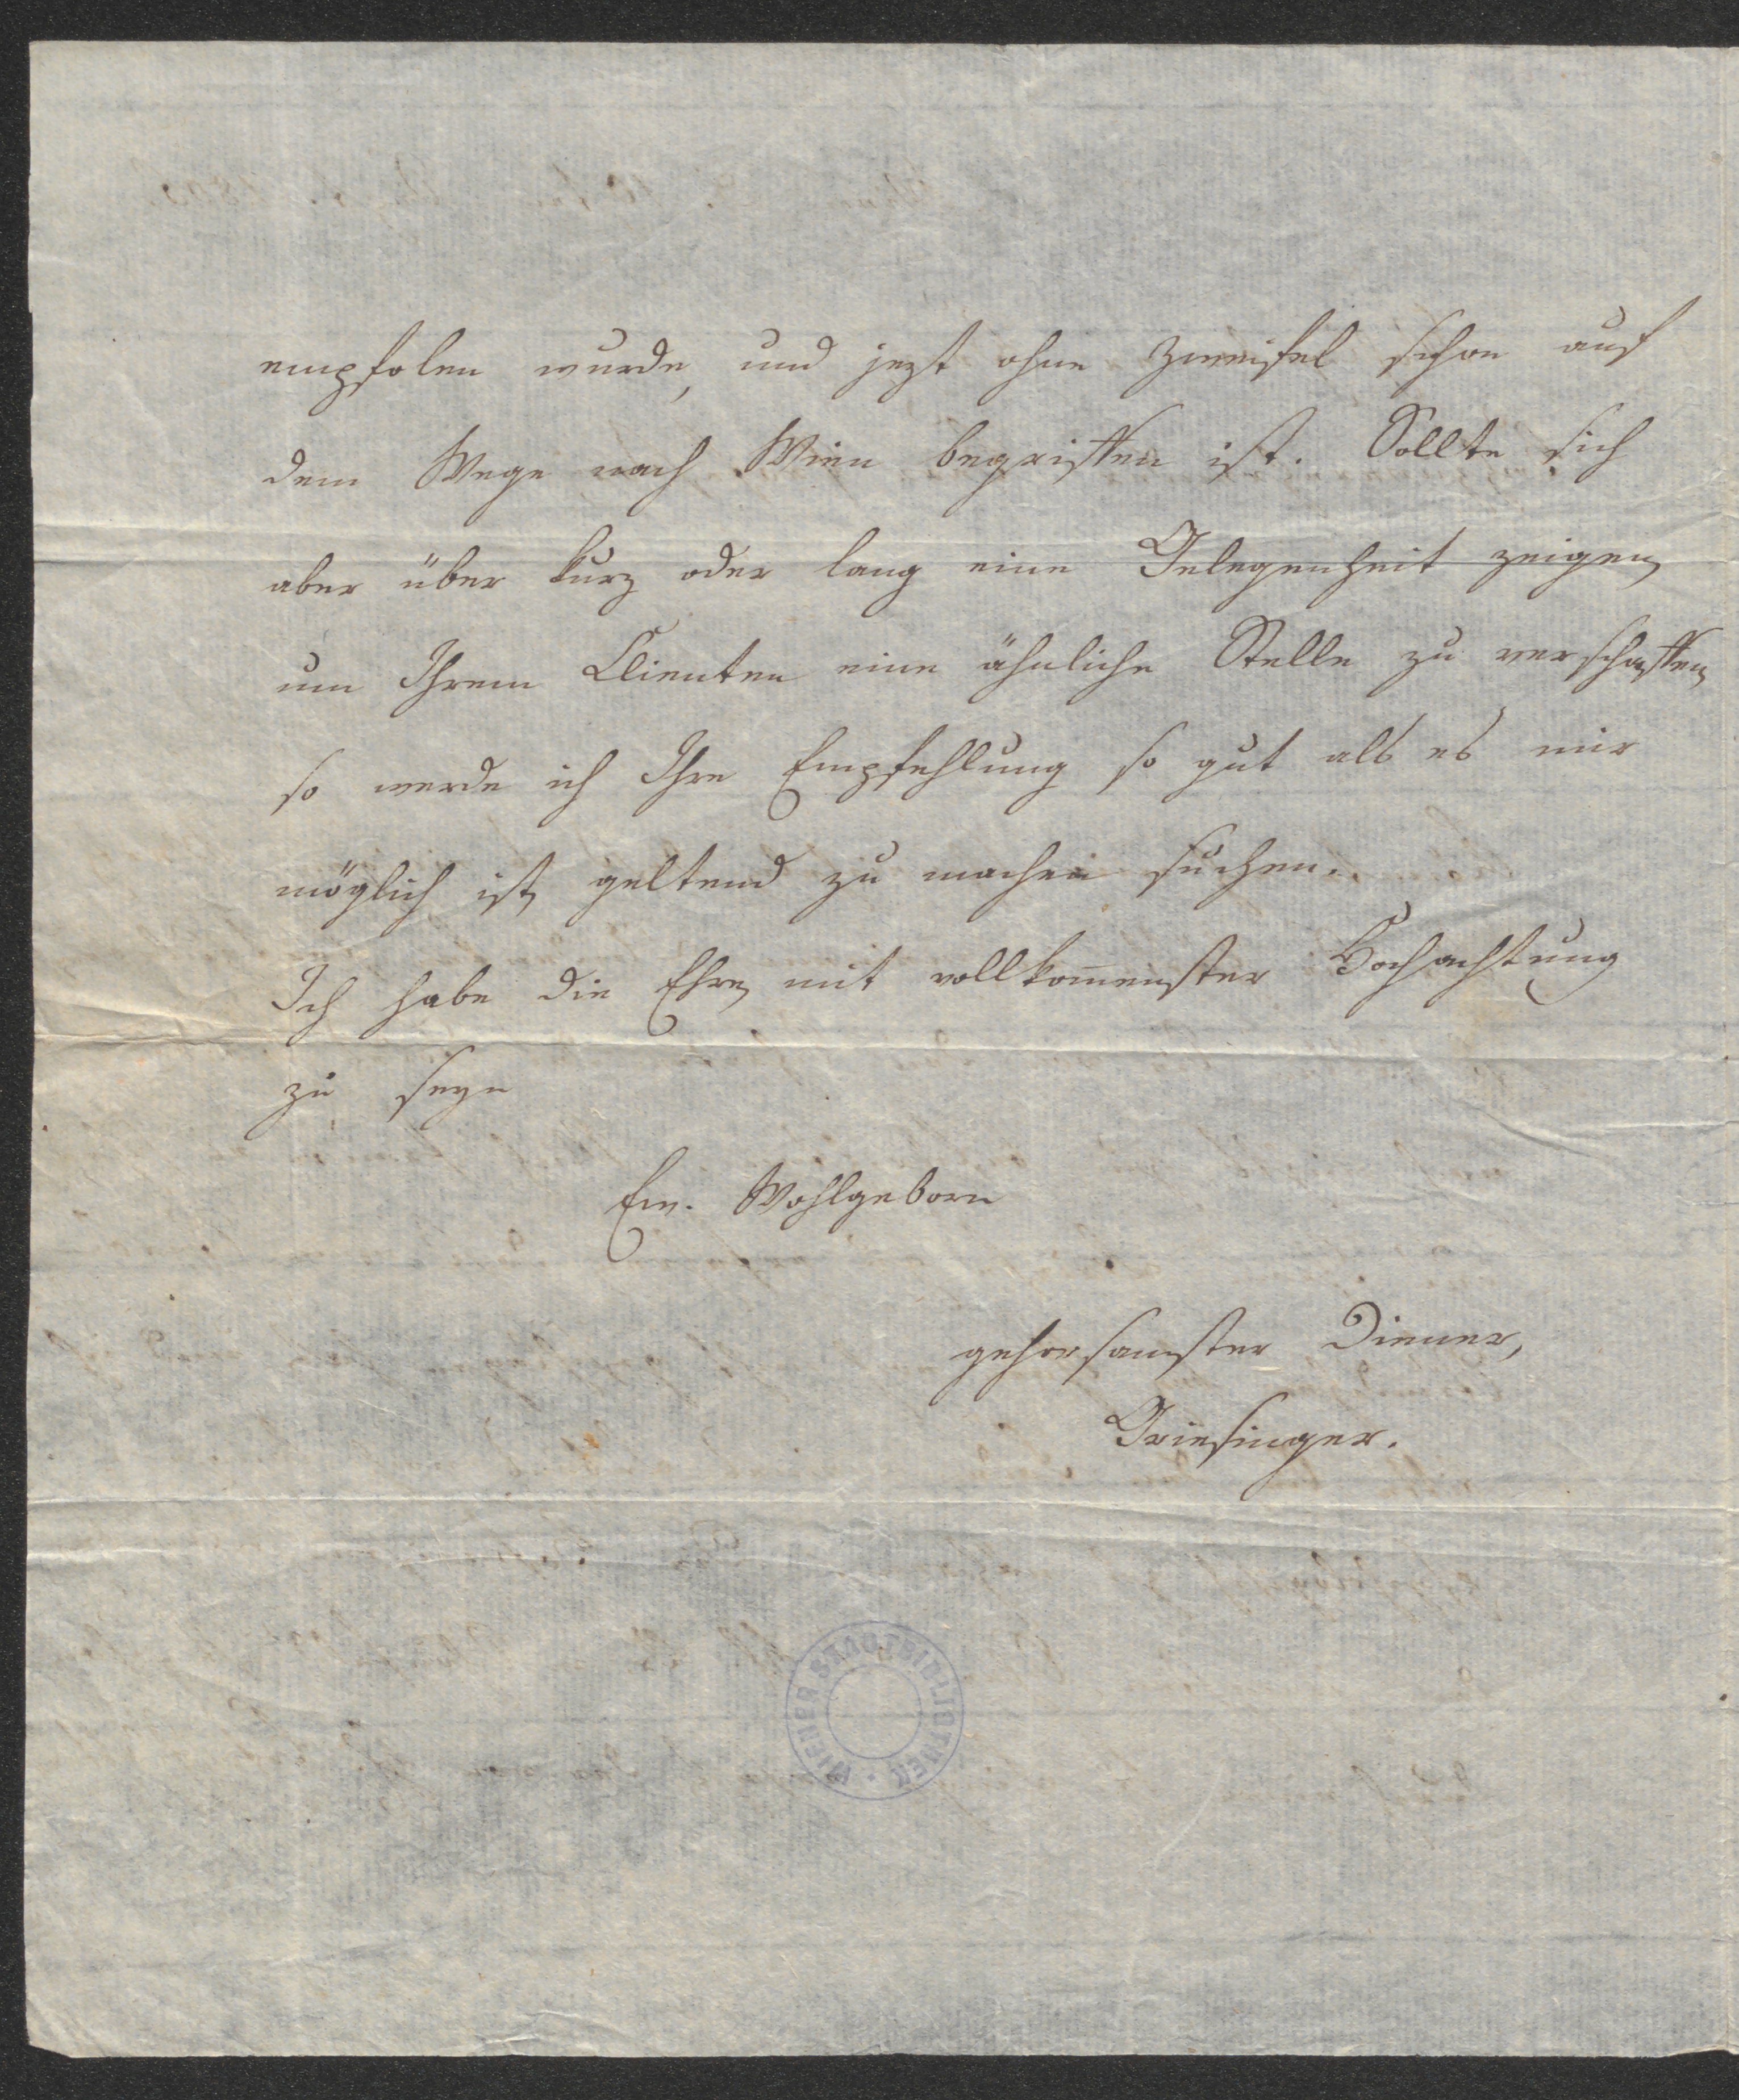 empfolen wurde, und jezt ohne Zweifel schon auf
dem Wege nach Wien begriffen ist. Sollte sich
aber über kurz oder lang eine Gelegenheit zeigen,
um Ihrem Clienten eine ähnliche Stelle zu verschaffen,
so werde ich Ihre Empfehlung so gut als es mir
möglich ist, geltend zu machen suchen.
Ich habe die Ehre, mit vollkom̄enster Hochachtung
zu seyn
Ew. Wohlgeborn
gehorsamster Diener,
Griesinger.
WIENER STADTBIBLIOTHEK